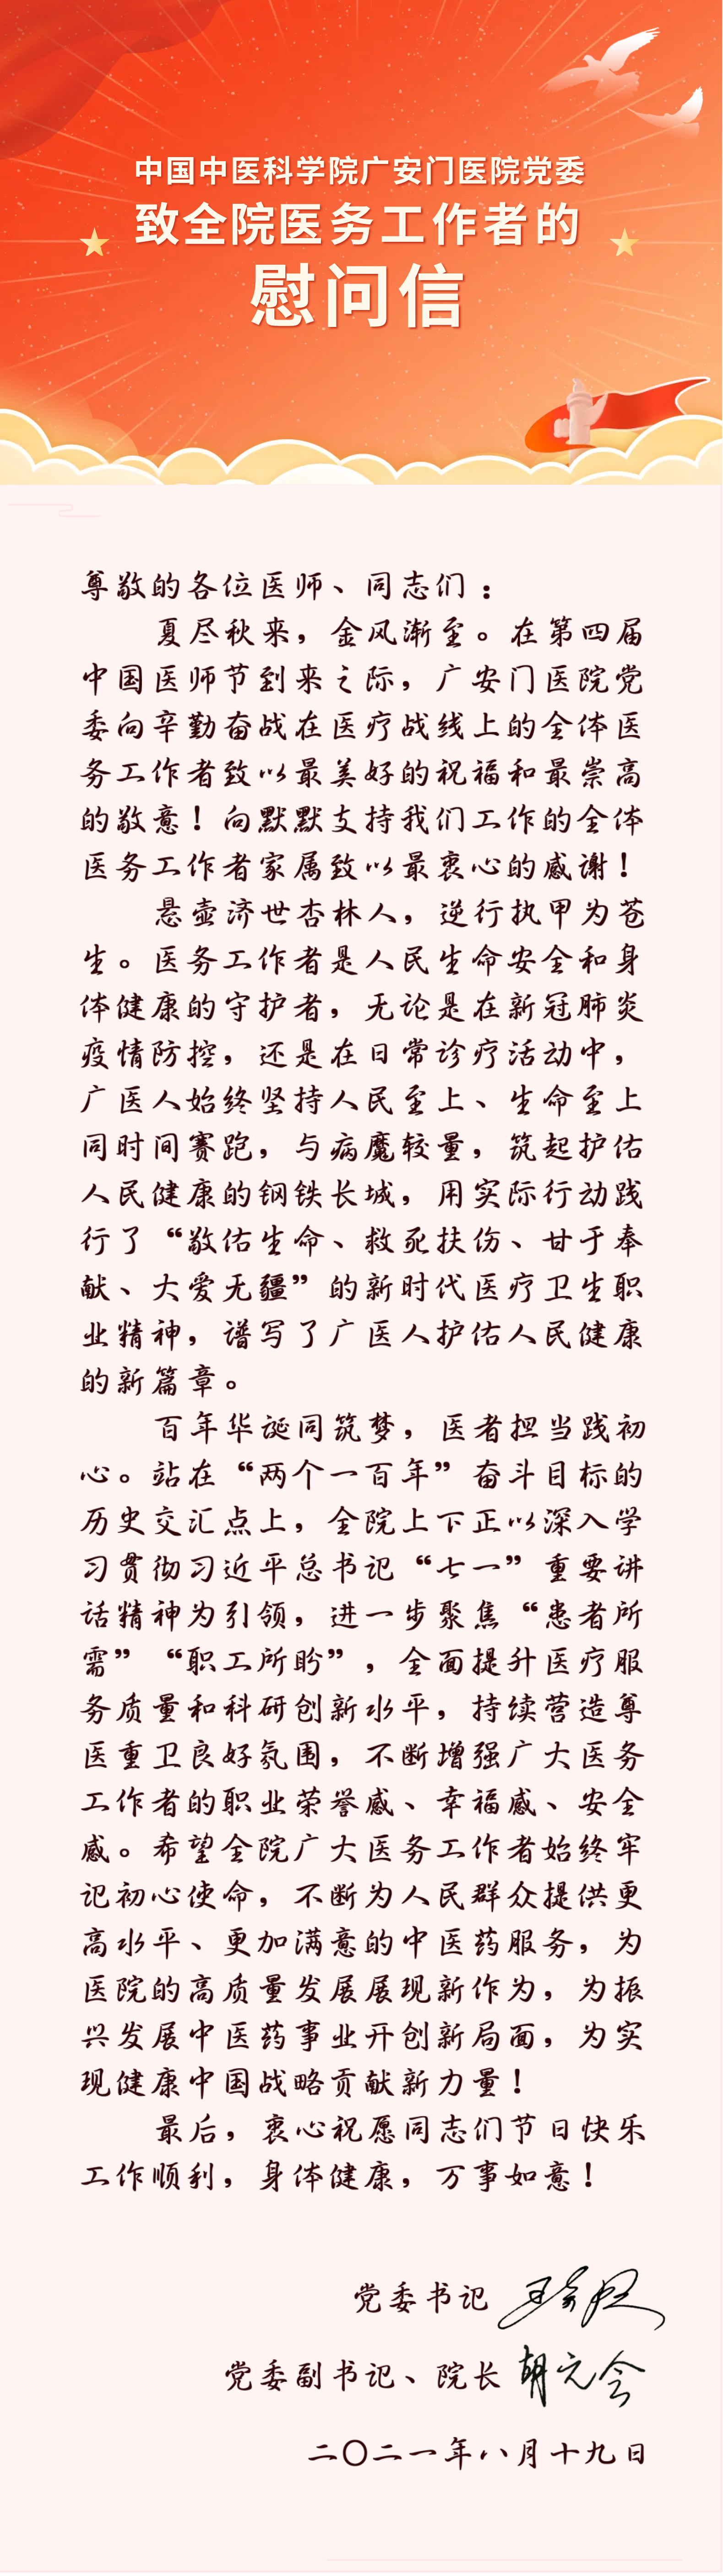 中国中医科学院广安门医院党委
致全院医务工作者的
慰问信
尊敬的各位医师、同志们：
夏尽秋来，金风渐至。在第四届
中国医师节到来之际，广安门医院党
委向辛勤奋战在医疗战线上的全体医
务工作者致以最美好的祝福和最崇高
的敬意！向默默支持我们工作的全体
医务工作者家属致以最衷心的感谢！
悬壶济世杏林人，逆行执甲为苍
生。医务工作者是人民生命安全和身
体健康的守护者，无论是在新冠肺炎
疫情防控，还是在日常诊疗活动中，
广医人始终坚持人民至上、生命至上
同时间赛跑，与病魔较量，筑起护佑
人民健康的钢铁长城，用实际行动践
行了“敬佑生命、救死扶伤、甘于奉
献、大爱无疆”的新时代医疗卫生职
业精神，谱写了广医人护佑人民健康
的新篇章。
百年华诞同筑梦，医者担当践初
心。站在“两个一百年”奋斗目标的
历史交汇点上，全院上下正以深入学
习贯彻习近平总书记“七一”重要讲
话精神为引领，进一步聚焦“患者所
需”“职工所盼”，全面提升医疗服
务质量和科研创新水平，持续营造尊
医重卫良好氛围，不断增强广大医务
工作者的职业荣誉感、幸福感、安全
感。希望全院广大医务工作者始终牢
记初心使命，不断为人民群众提供更
高水平、更加满意的中医药服务，为
医院的高质量发展展现新作为，为振
兴发展中医药事业开创新局面，为实
现健康中国战略贡献新力量！
最后，衷心祝愿同志们节日快乐
工作顺利，身体健康，万事如意！
党委书记
党委副书记、院长 胡元会
二〇二一年八月十九日